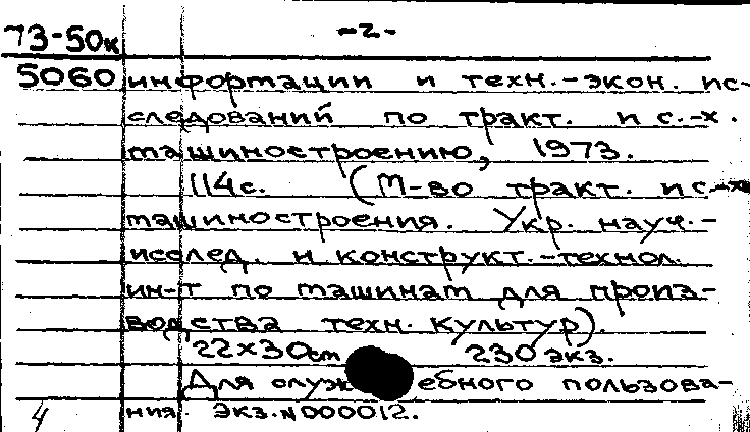 73-50к
-2-
5060 информации и техн.-экон. ис-
следований по тракт. и с.-х.
машиностроению, 1973.
114с. (М-во тракт. и с.-х.
машиностроения. Укр. науч.-
исслед. и конструкт.-технол.
ин-т по машинам для произ-
водства техн. культур).
22х30см 230 экз.
Для служебного пользова-
4 ния. Экз. N 000012.